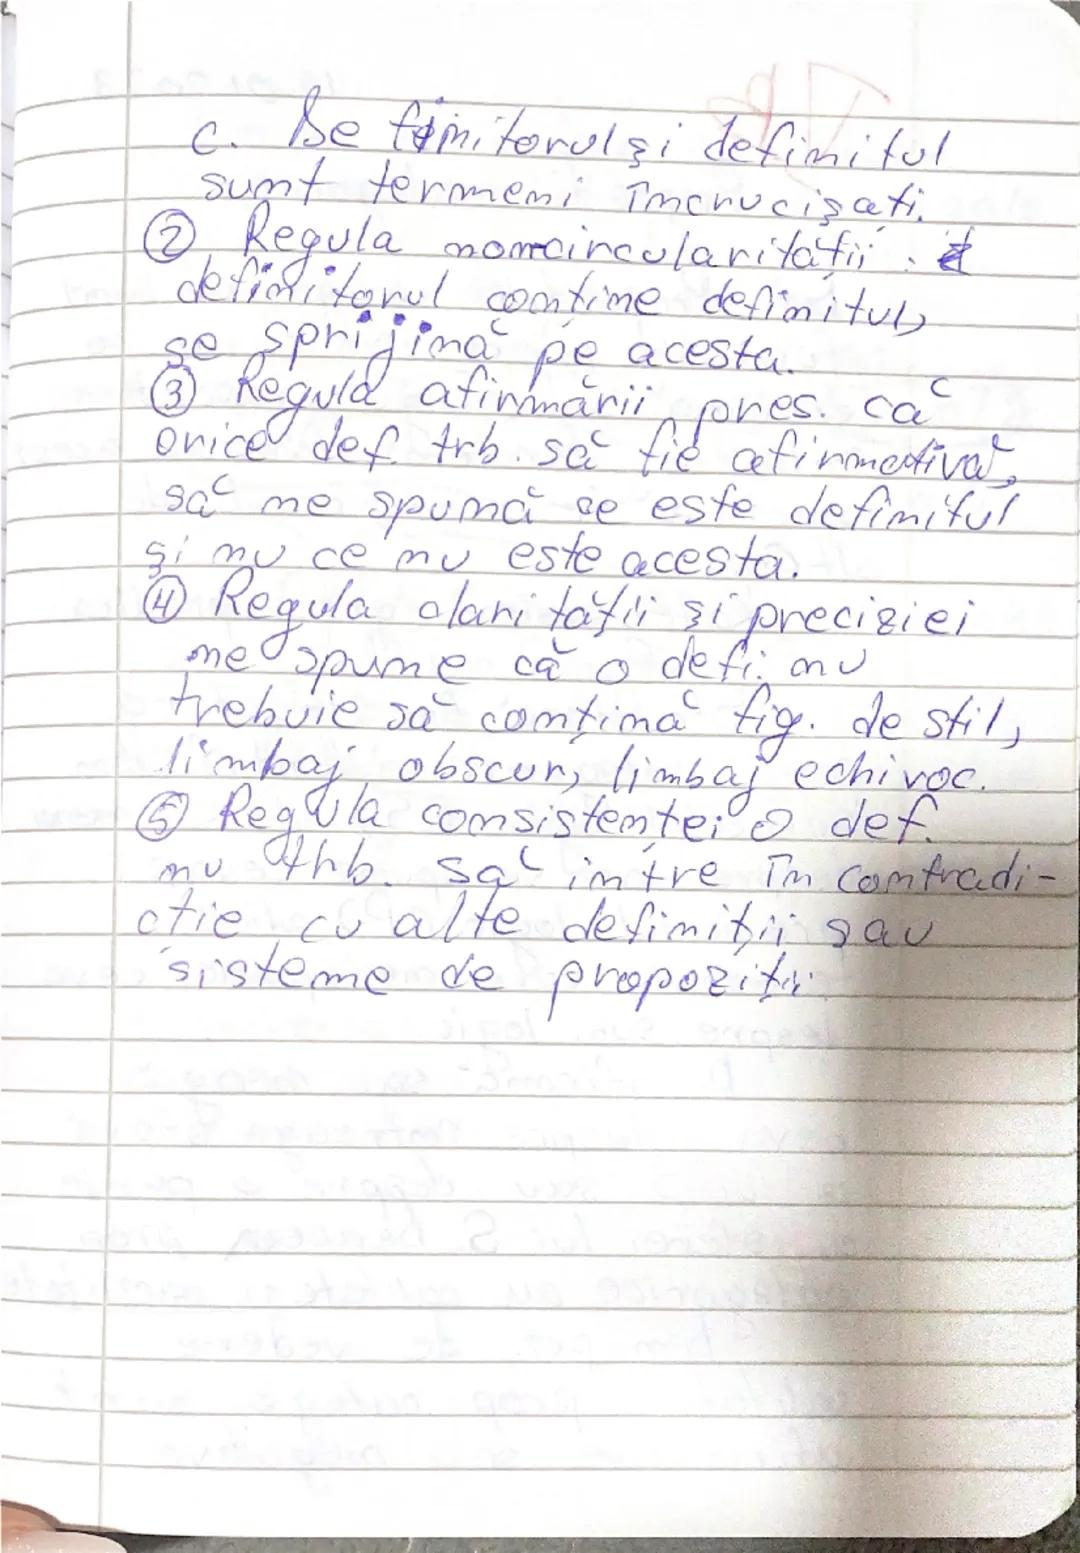 c. Definitorul și definitul
sunt termeni încrucișați.
② Regula noncircularității:
definitorul conține definitul,
se sprijină pe acesta.
③ Regula afirmării pres. că
orice def. trb. să fie afirmativă,
să ne spună ce este definitul
și nu ce nu este acesta.
④ Regula clarității și preciziei
ne spune că o defi. nu
trebuie să conțină fig. de stil,
limbaj obscur, limbaj echivoc.
⑤ Regula consistenței o def.
nu trb. să intre în contradi-
cție cu alte definiții sau
sisteme de propoziții